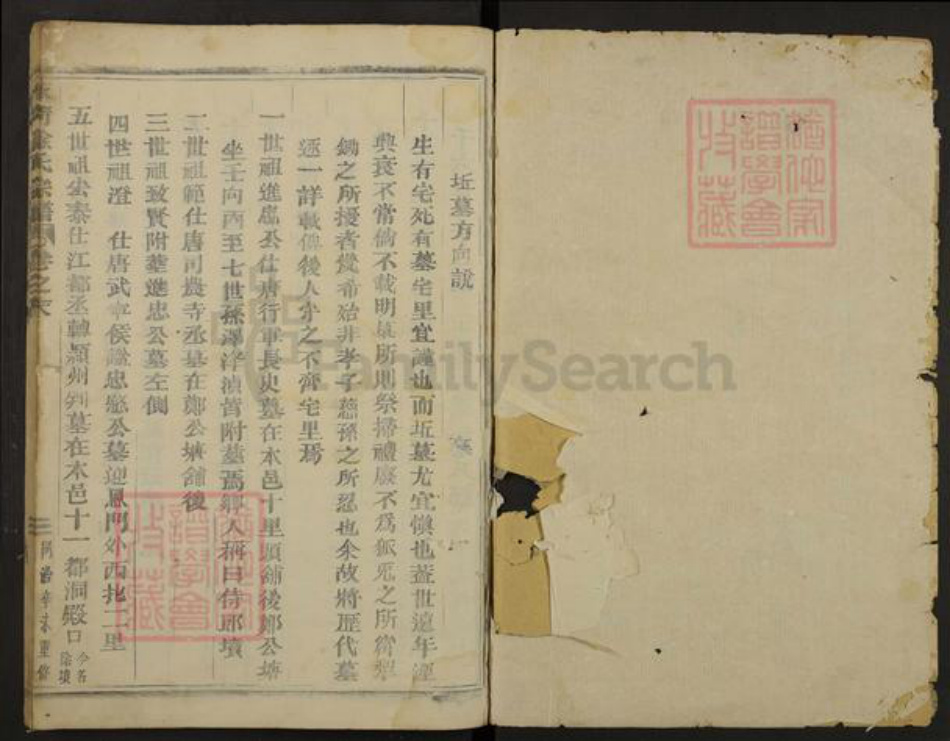 坵墓方向說
生有宅死有墓宅里宜謹也而坵墓尤宜慎也蓋世遠年湮
典衰不常倘不載明某所則祭掃禮廢不為狐兎之所
鋤之所擾者幾希殆非孝子慈孫之所忍也余故將歷代墓
逐一詳載俾後人
之不齊宅里焉
一世祖進忠公仕唐行軍長史墓在本邑十里頭舖後鄭公塘
坐壬向丙至七世孫澤浡湞皆附墓焉鄉人稱曰侍郎墳
二世祖範仕唐司農寺丞墓在鄭公塘舖後
三世祖致賢附葬進忠公墓左側
四世祖澄 仕唐武寧侯諡忠愍公墓迎恩門外西北二里
五世祖公泰仕江都丞轉潁州判墓在本邑十一都洞殿口今名徐墳
徐氏宗譜 卷之六
三
同治辛未重修
譜學會
收藏
譜學會
收藏
FamilySearch